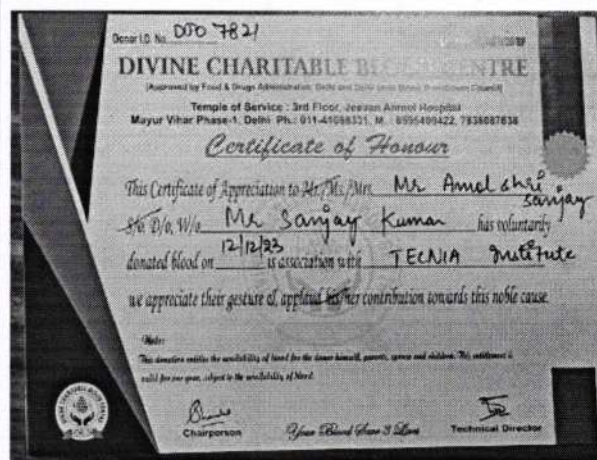 Donor I.D. No. DJO 7821
DIVINE CHARITABLE BLOOD CENTRE
(Approved by Food & Drugs Administration, Delhi and Delhi State Blood Transfusion Council)
Temple of Service : 3rd Floor, Jeevan Anmol Hospital
Mayur Vihar Phase-1, Delhi Ph.: 011-41088331, M.: 8595409422, 7838087638
Certificate of Honour
This Certificate of Appreciation to Mr./Ms./Mrs. Mr Amol shri
sanjay
S/o, D/o, W/o Mr Sanjay Kumar has voluntarily
donated blood on 12/12/23 is association with TECNIA Institute
we appreciate their gesture of, applaud his/her contribution towards this noble cause.
Note:
This donation entitles the availability of blood for the donor himself, parents, spouse and children. This entitlement is
valid for one year, subject to the availability of blood.
Chairperson
Your Blood Save 3 Lives
Technical Director